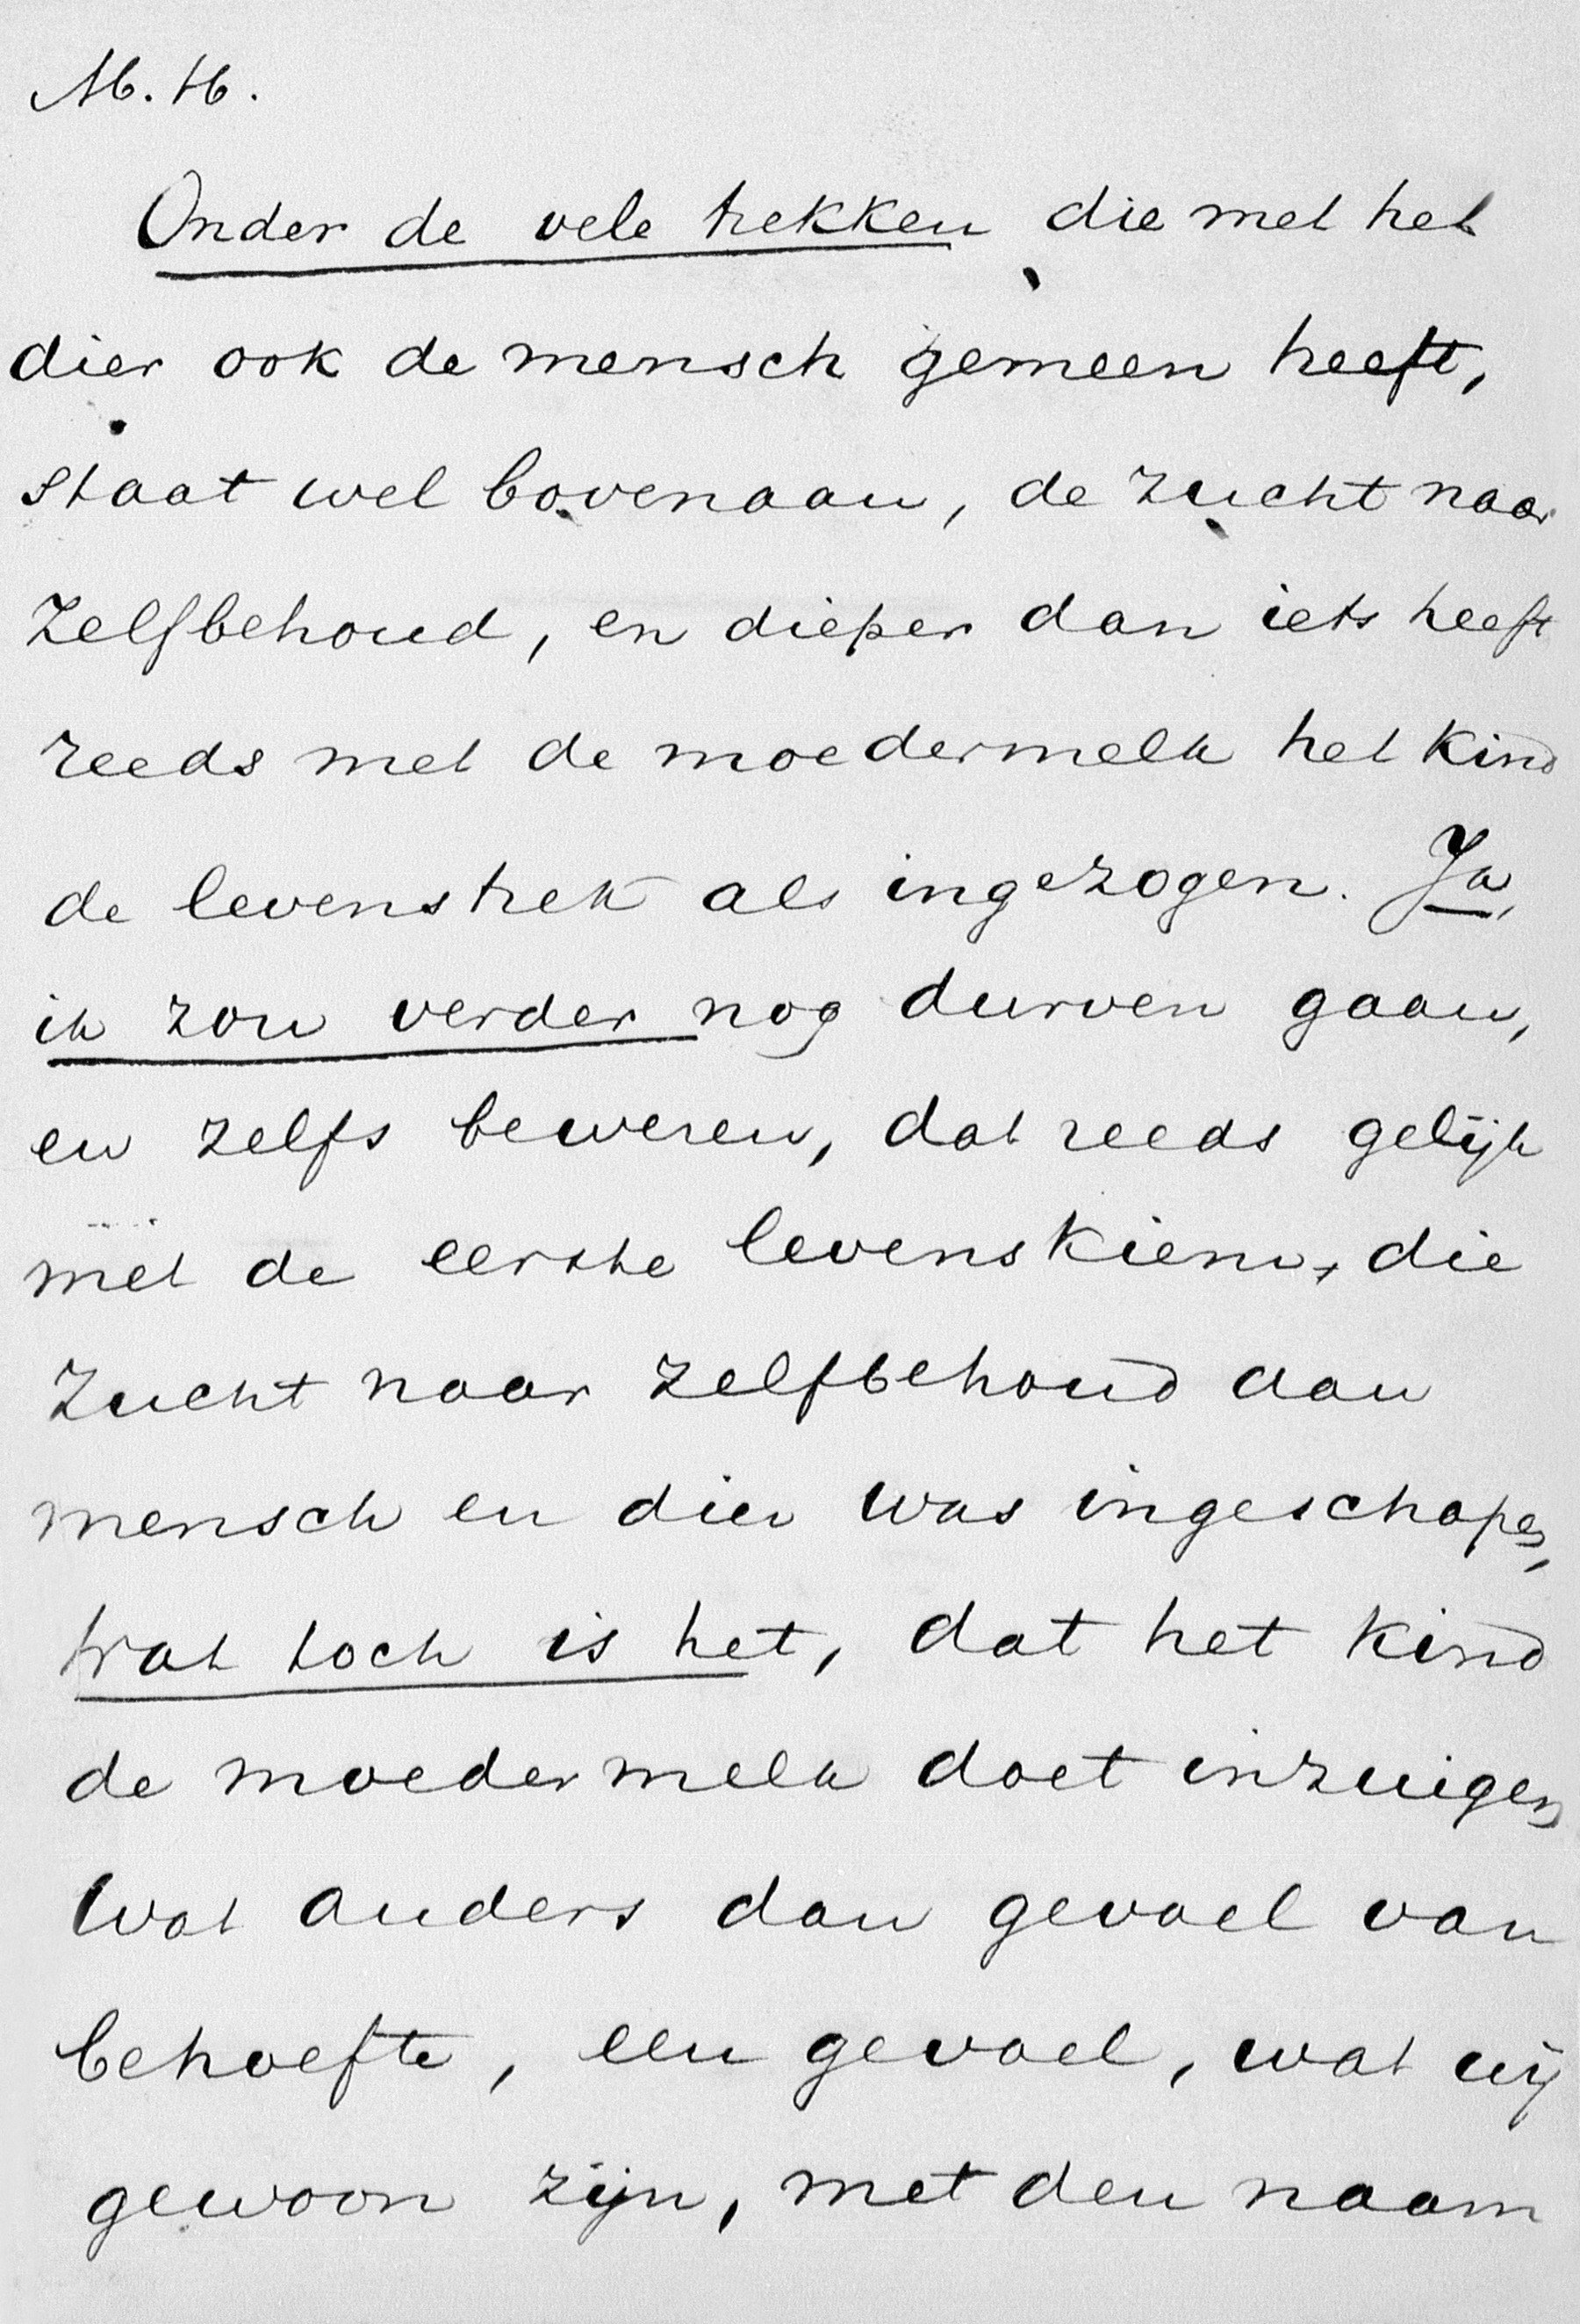 M. H.
Onder de vele trekken die met het
dier ook de mensch gemeen heeft,
staat wel bovenaan, de zucht naar
zelfbehoud, en dieper dan iets heeft
reeds met de moedermelk het kind
de levenstrek als ingezogen. Ja,
ik zou verder nog durven gaan,
en zelfs beweren, dat reeds gelijk
met de eerste levenskiem, die
zucht naar zelfbehoud aan
mensch en dier was ingeschapen,
Wat toch is het, dat het kind
de moedermelk doet inzuigen
Wat anders dan gevoel van
behoefte, een gevoel, wat wij
gewoon zijn, met den naam